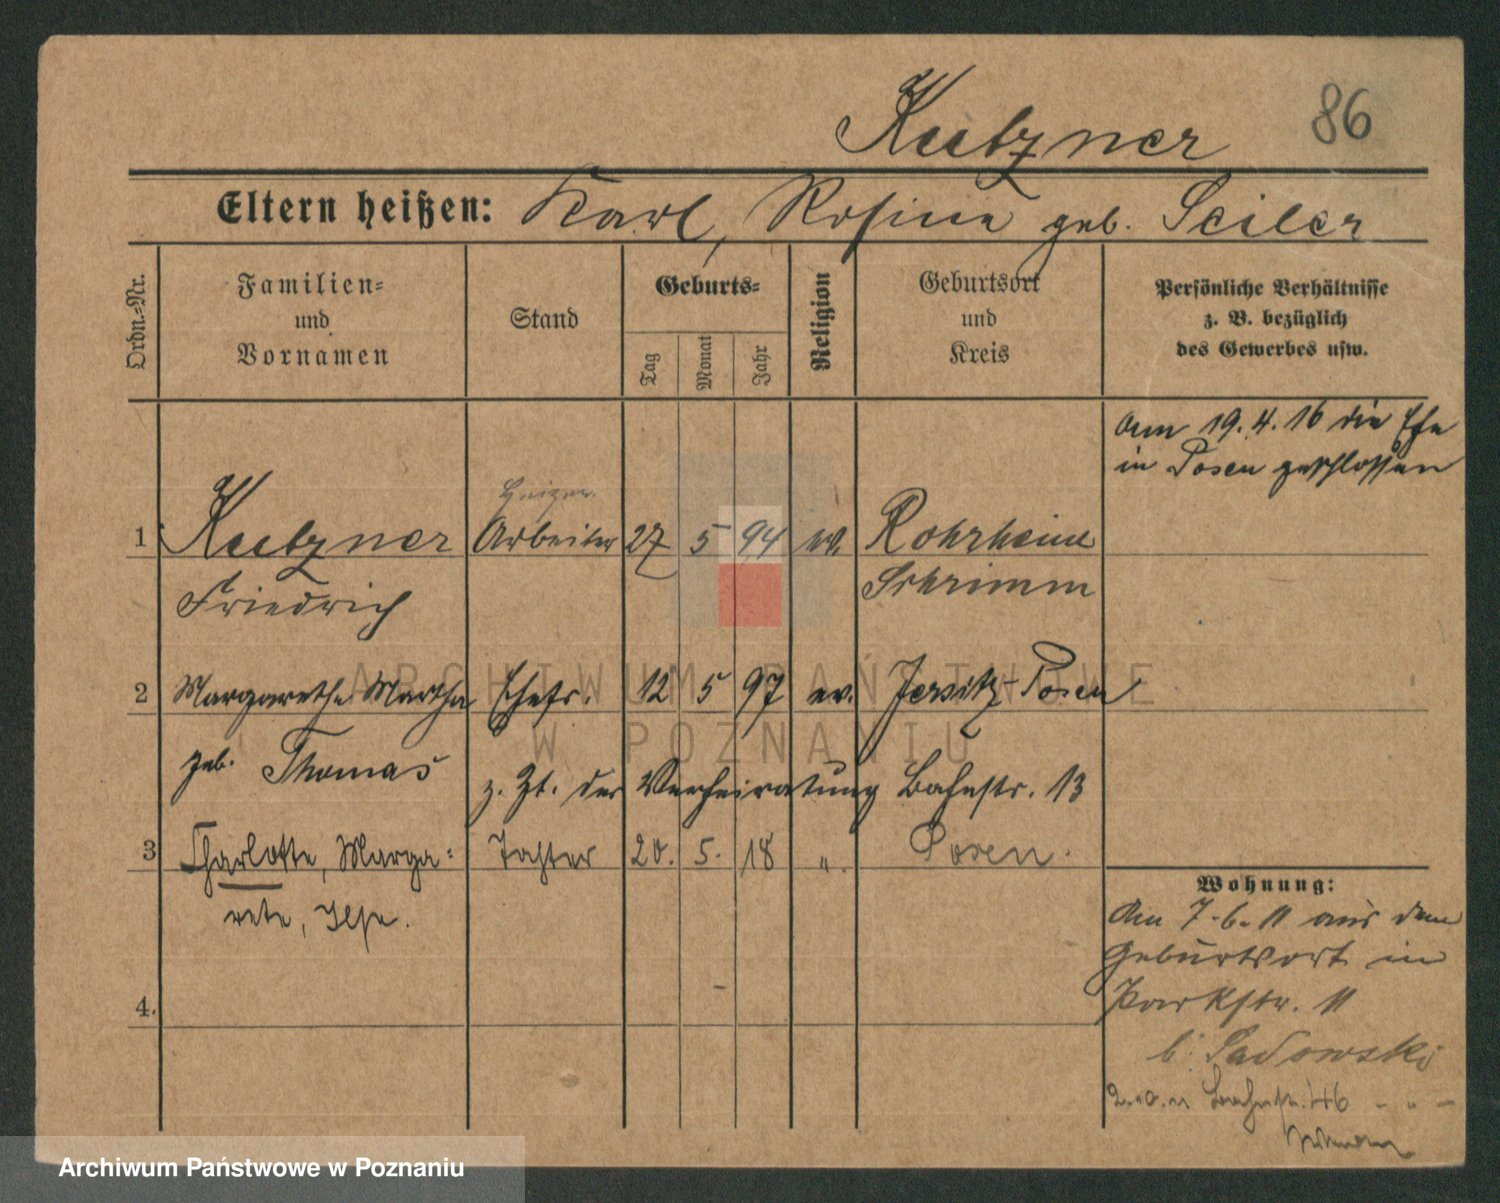 Kutzner 86
Eltern heißen: Karl, Rosina geb. Seiler
Ordn.-Nr.
Familien-
und
Vornamen
Stand
Geburts-
Tag
Monat
Jahr
Religion
Geburtsort
und
Kreis
Persönliche Verhältnisse
z. B. bezüglich
des Gewerbes usw.
am 19.4.16 die Ehe
in Posen geschlossen
Heizer.
1 Kutzner Arbeiter 27 5 94 ev. Rohrheim
Friedrich Schrimm
2 Margarethe Martha Ehefr. 12 5 97 ev. Jersitz-Posen
geb. Thomas z. Zt. der Verheiratung Bahnstr. 13
3 Charlotte, Marga= Tochter 20. 5. 18 ". Posen.
rete, Ilse.
4.
Wohnung:
Am 7.6.11 aus dem
Geburtsort in
Parkstr. 11
b. Sadowski
46
ARCHIWUM PAŃSTWOWE
W POZNANIU
Archiwum Państwowe w Poznaniu